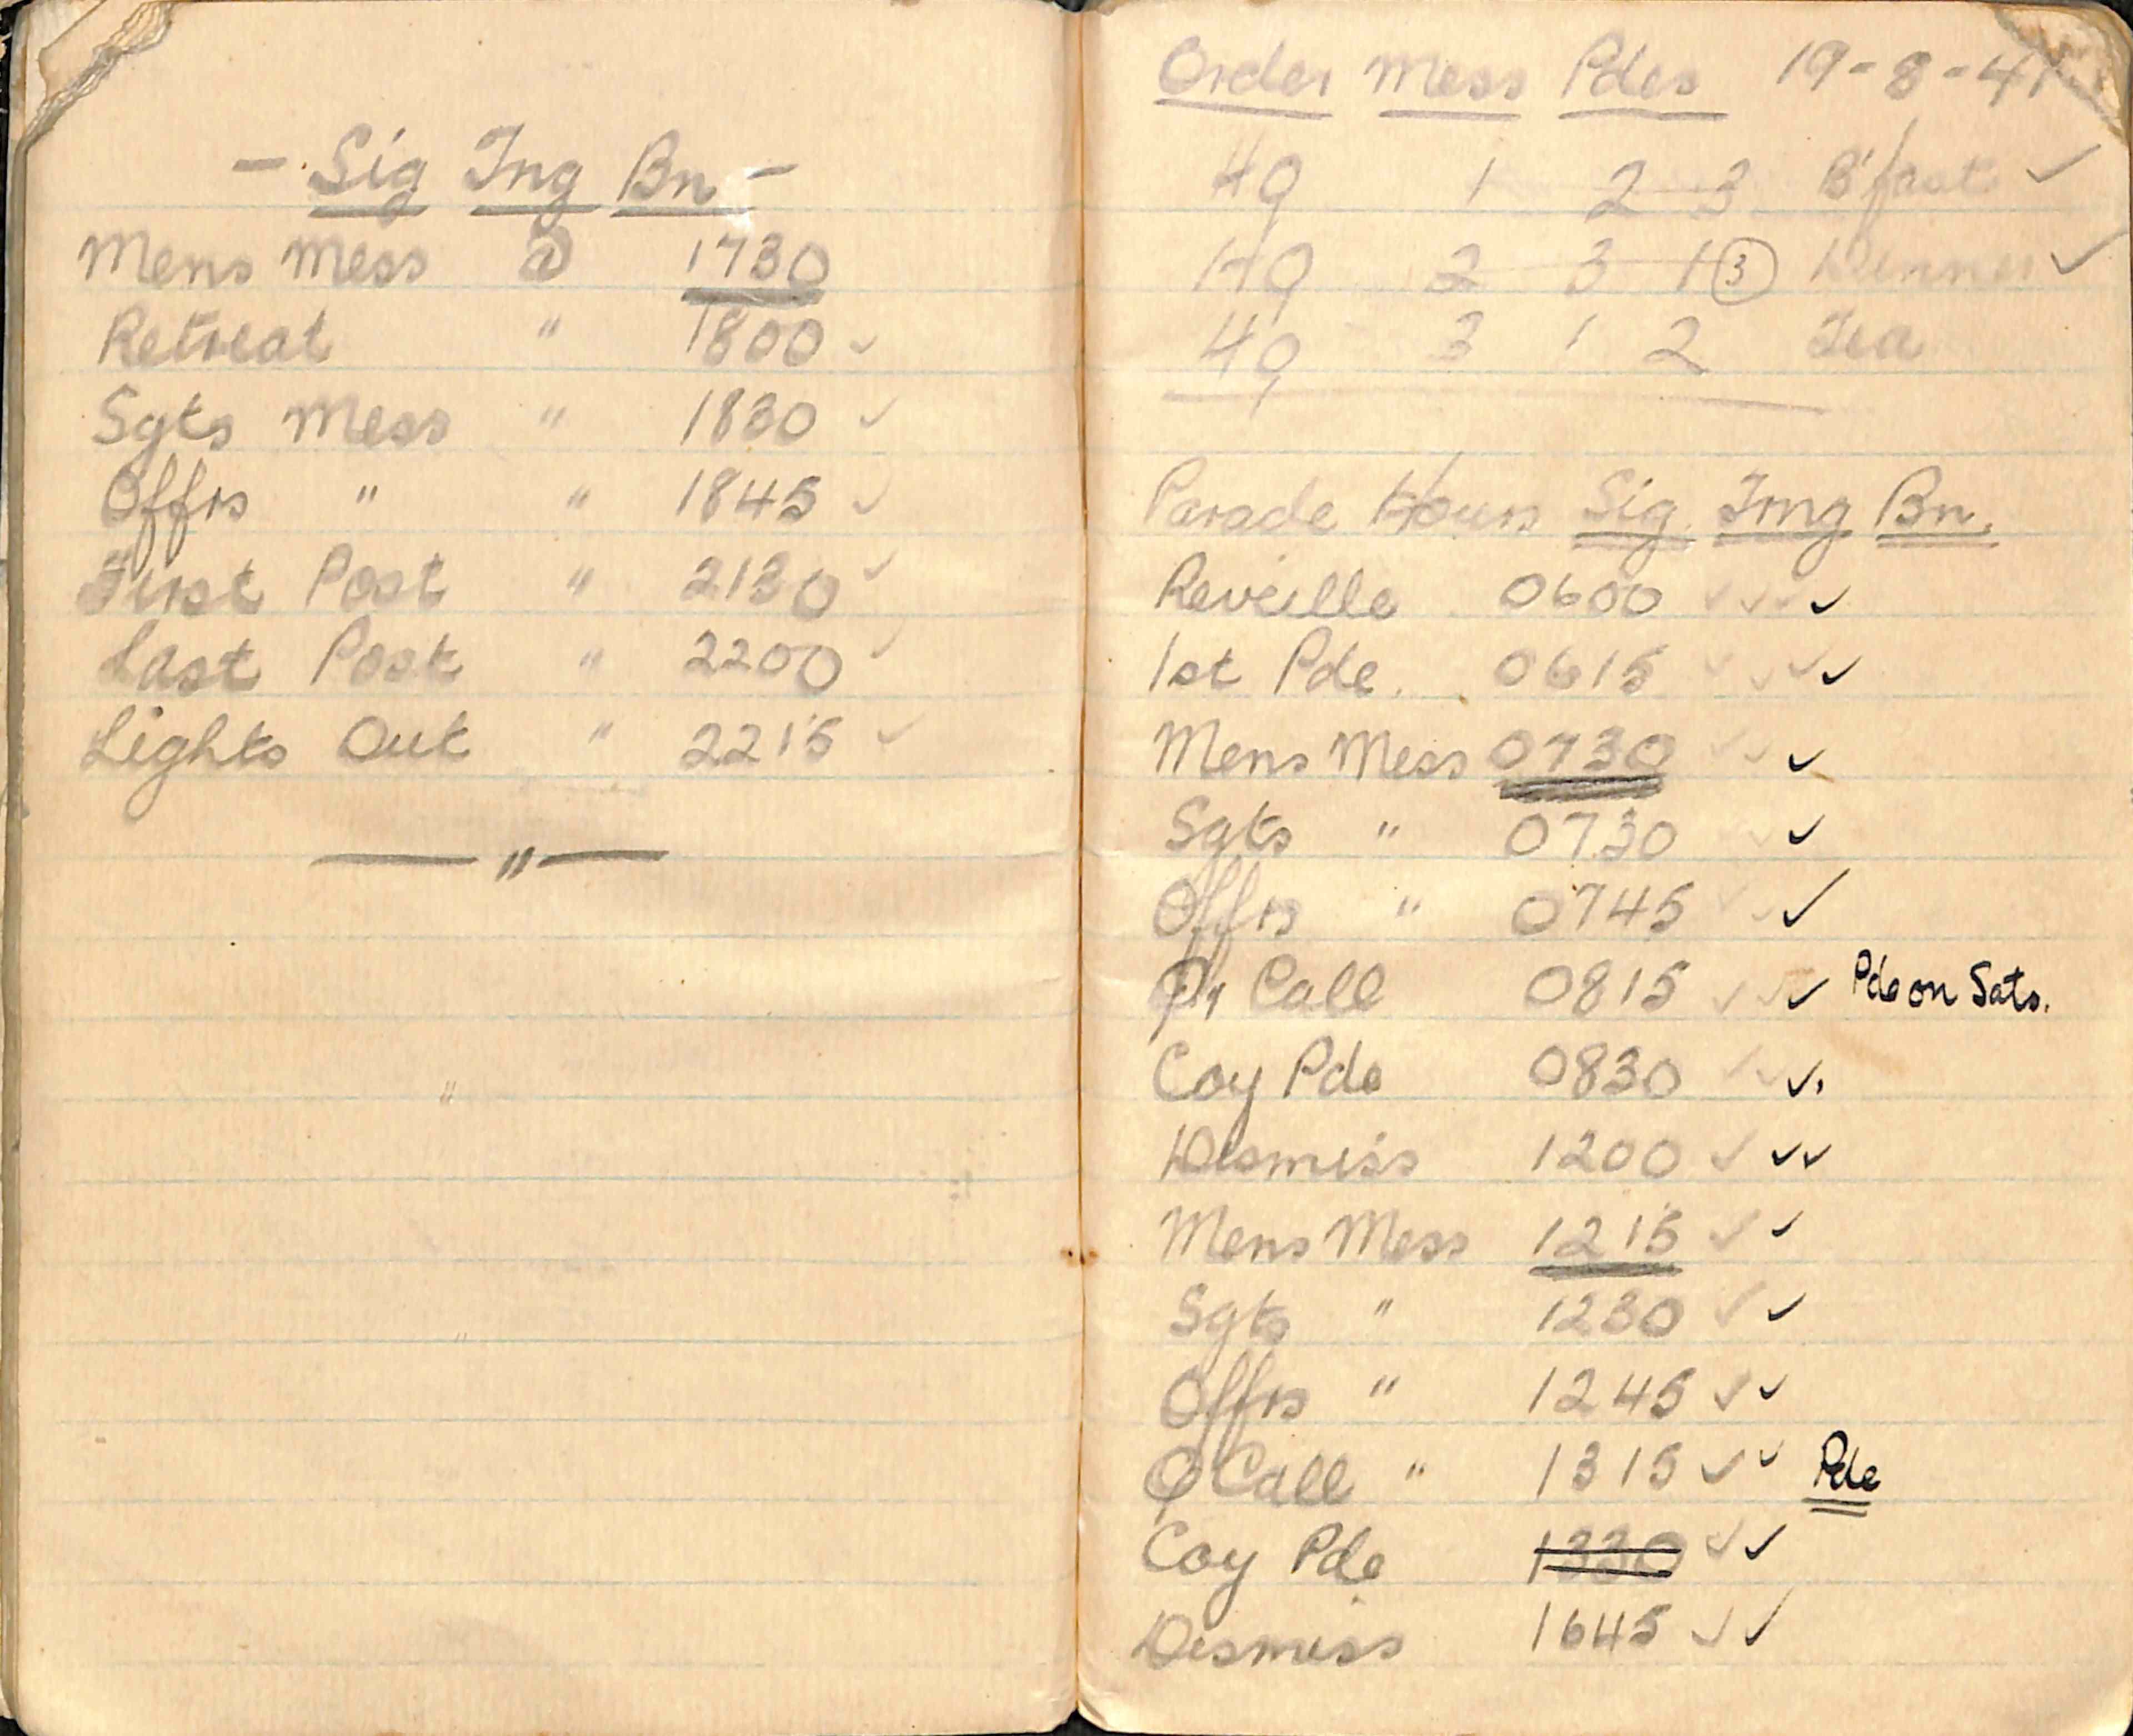 - Sig Tng Bn -
Mens Mess @ 1730
Retreat " 1800 ✓
Sgts Mess " 1830 ✓
Offrs " " 1845 ✓
First Post " 2130 ✓
Last Post " 2200 ✓
Lights Out " 2215 ✓
— " —
Order Mess Pdes 19-8-41
HQ 1 2 3 B'fast ✓
HQ 2 3 1 (3) Dinner ✓
HQ 3 1 2 Tea
Parade Hours Sig. Trng Bn.
Reveille 0600 ✓ ✓ ✓ ✓
1st Pde. 0615 ✓ ✓ ✓ ✓
Mens Mess 0730 ✓ ✓ ✓
Sgts " 0730 ✓
Offrs " 0745 ✓ ✓ ✓
Call 0815 ✓ ✓ ✓ Pde on Sats.
Coy Pde 0830 ✓ ✓ ✓
Dismiss 1200 ✓ ✓ ✓
Mens Mess 1215 ✓ ✓
Sgts " 1230 ✓ ✓
Offrs " 1245 ✓ ✓
Q Call " 1315 ✓ ✓ Pde
Coy Pde 1330 ✓ ✓
Dismiss 1645 ✓ ✓